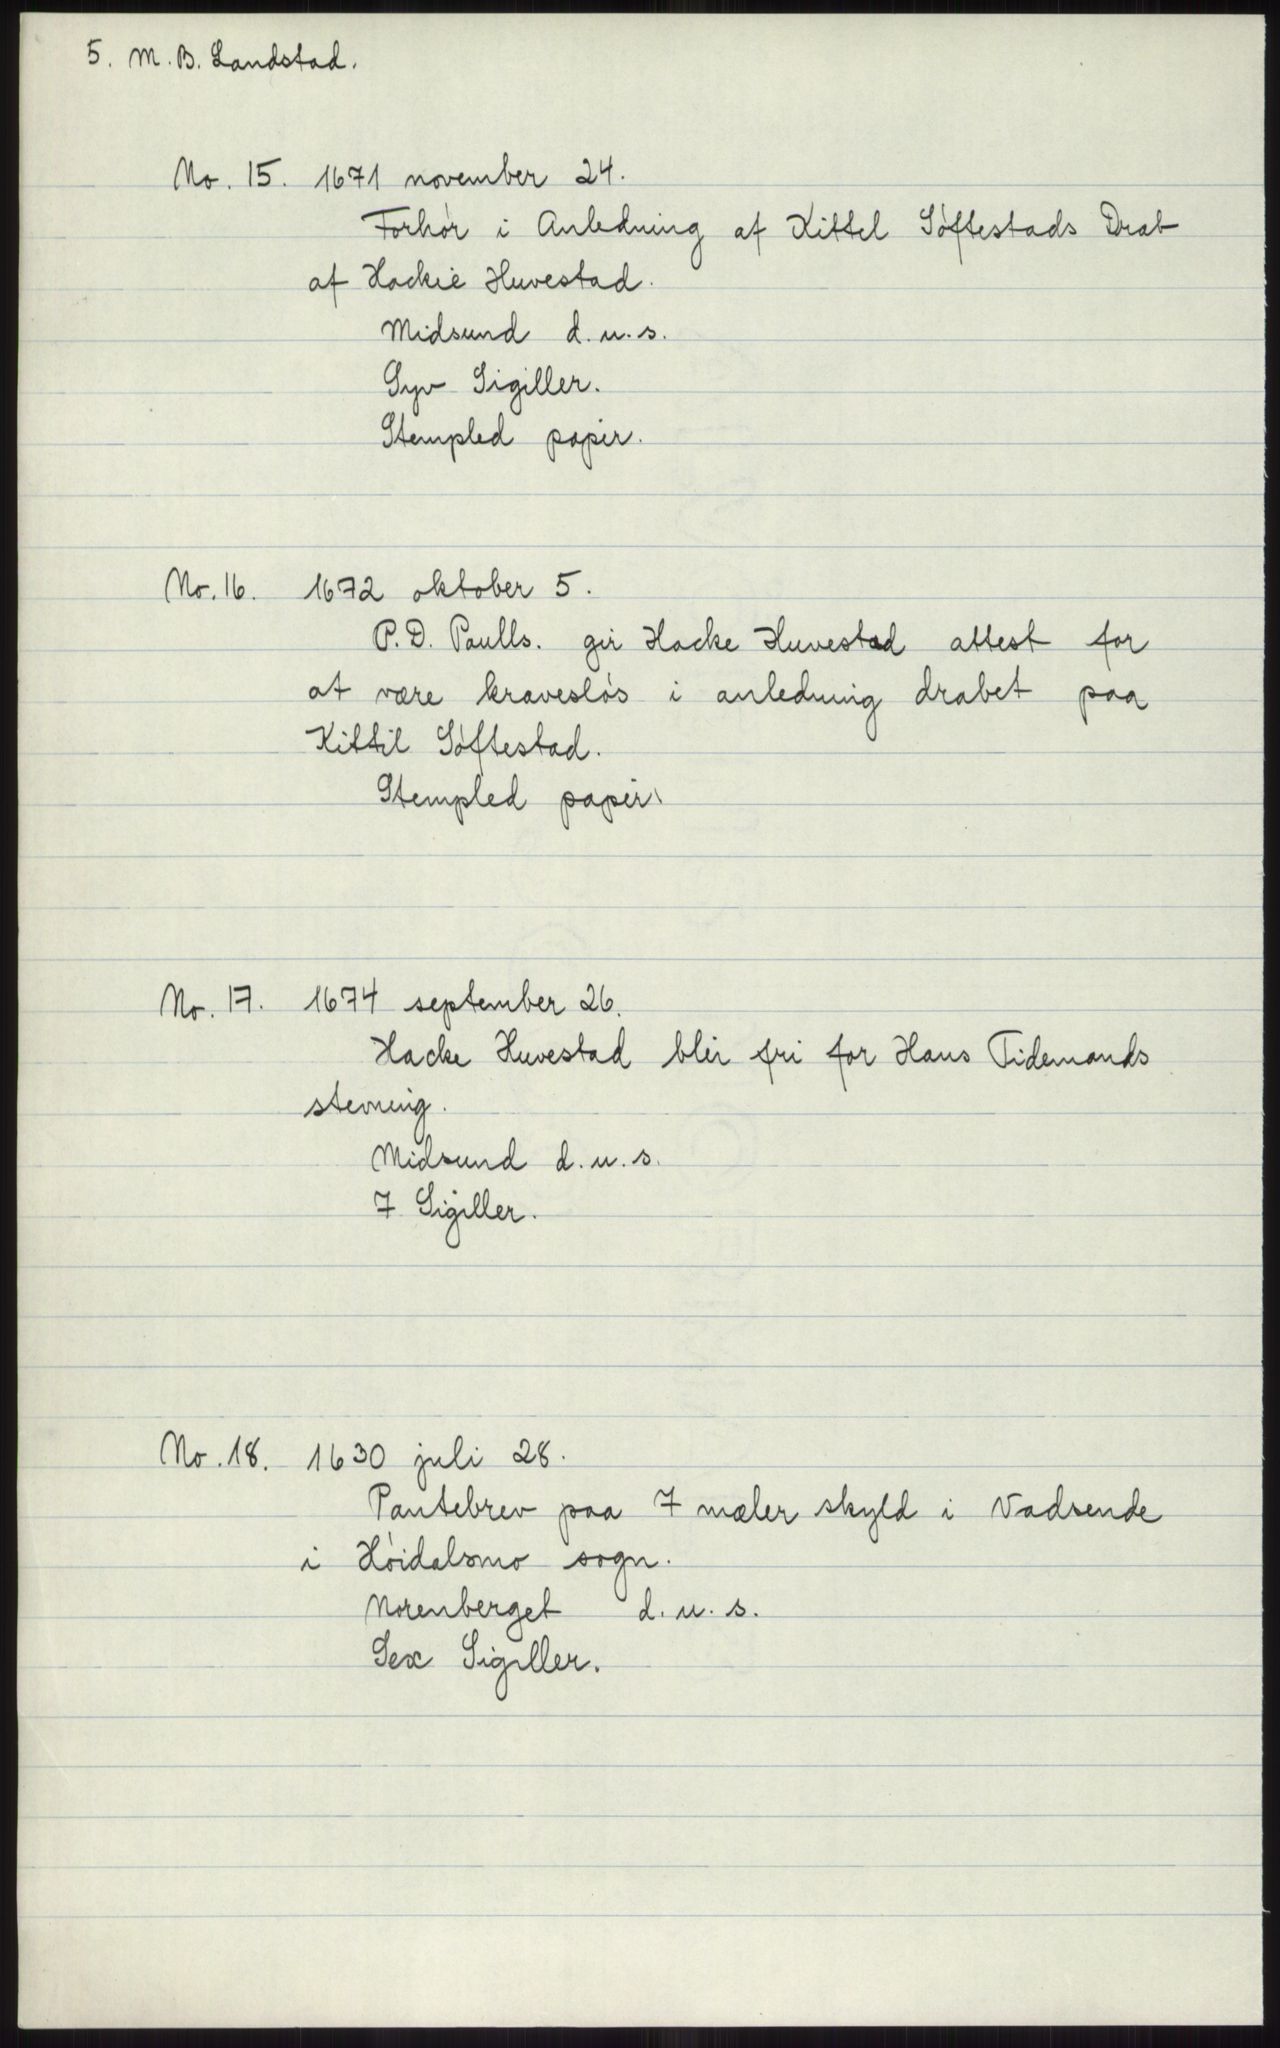 5. M. B. Landstad.
No. 15. 1671 november 24.
Forhór i Anledning af Kittel Sóftestads Drab
af Hackie Huvestad.
Midsund d. u. s.
Syv Sigiller.
Stempled papir.
No. 16. 1672 oktober 5.
P. D. Paulls. gir Hacke Huvestad attest for
at være kraveslós i anledning drabet paa
Kittil Sóftestad.
Stempled papir.
No. 17. 1674 september 26.
Hacke Huvestad blir fri for Hans Tidemands
stevning.
Midsund d. u. s.
7 Sigiller.
No. 18. 1630 juli 28.
Pantebrev paa 7 mæler skyld i Vadsende
i Hóidalsmo sogn.
Norenberget d. u. s.
Sex Sigiller.